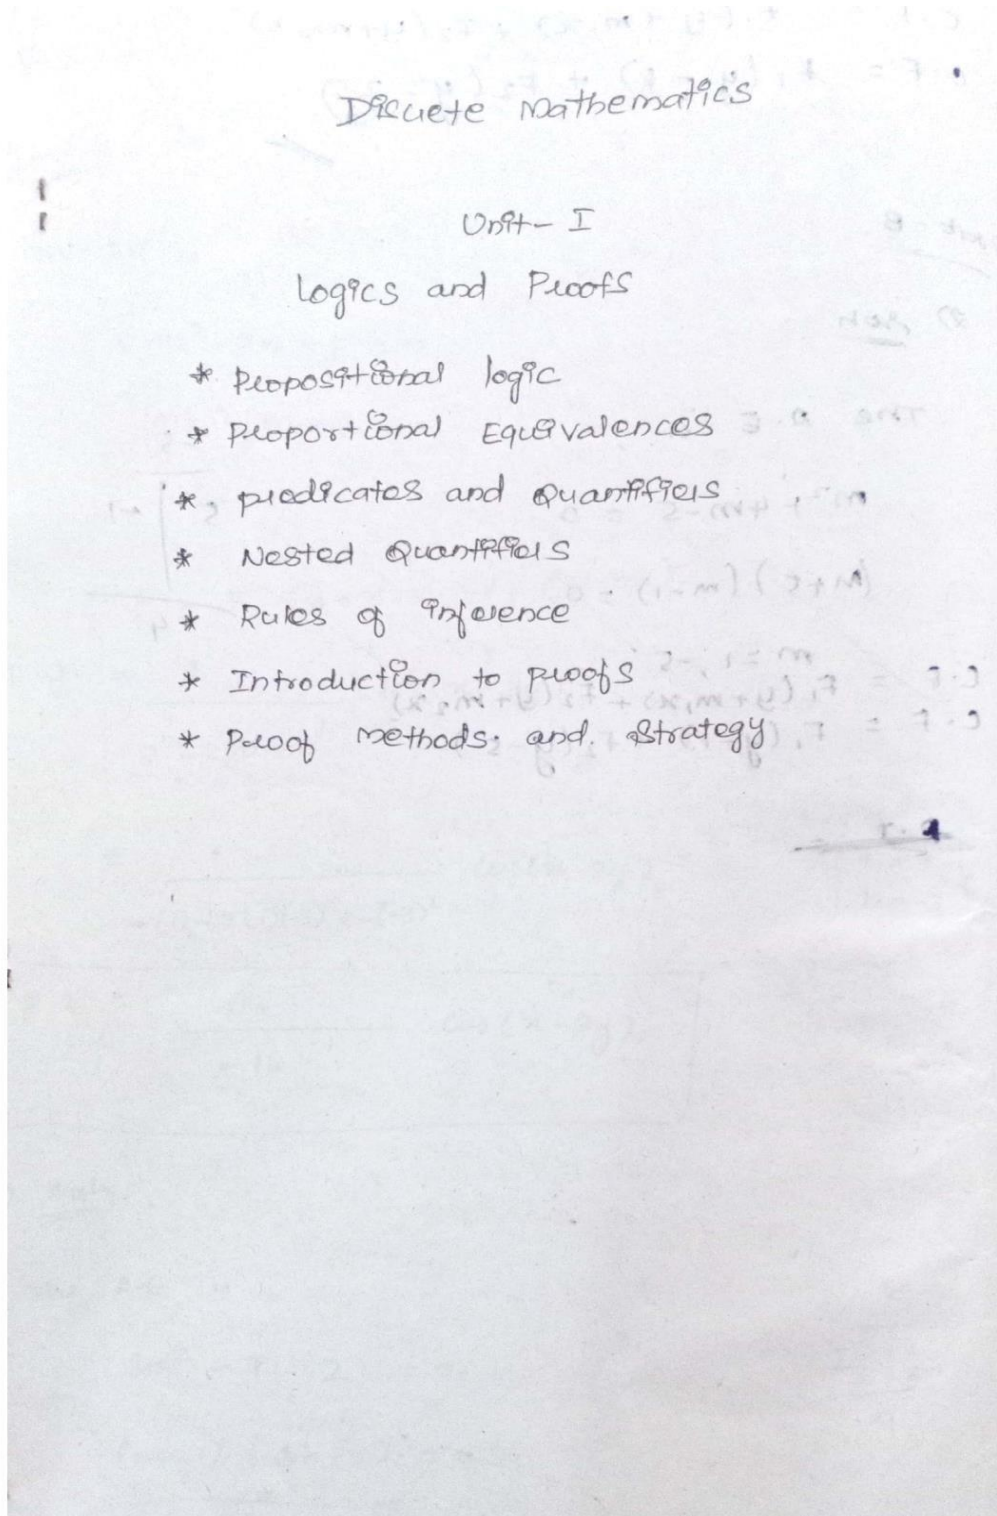 Discrete Mathematics
Unit- I
Logics and Proofs
* Propositional logic
* Proportional Equivalences
* predicates and Quantifiers
* Nested Quantifiers
* Rules of inference
* Introduction to proofs
* Proof methods. and. Strategy